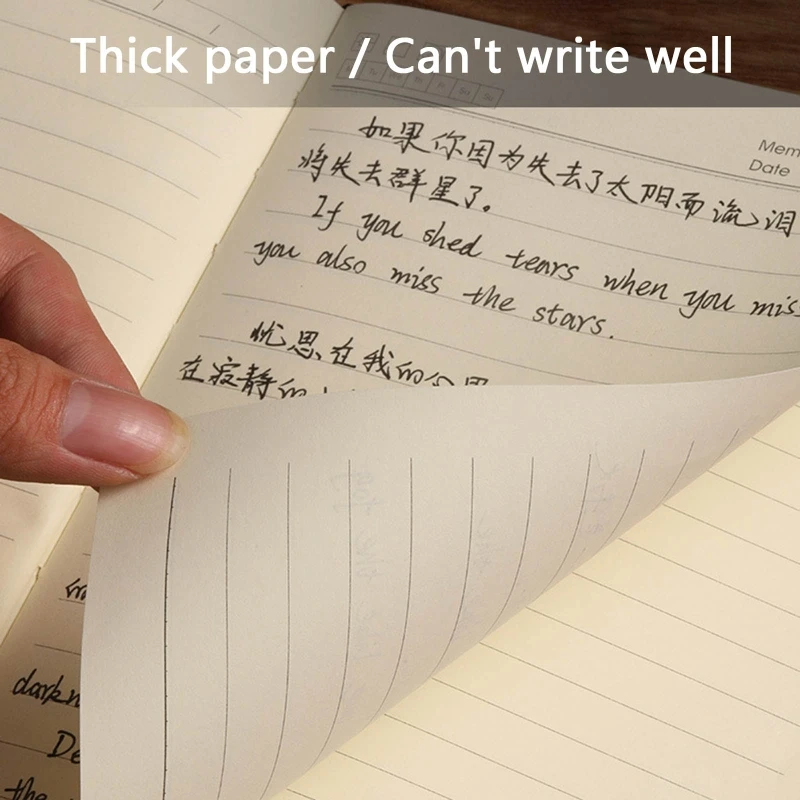 Thick paper / Can't write well
Mem
Date
如果你因为失去了太阳而流泪
将失去群星了。
If you shed tears when you mis
you also miss the stars.
忧思在我的心里
在寂静的
dark
De
the